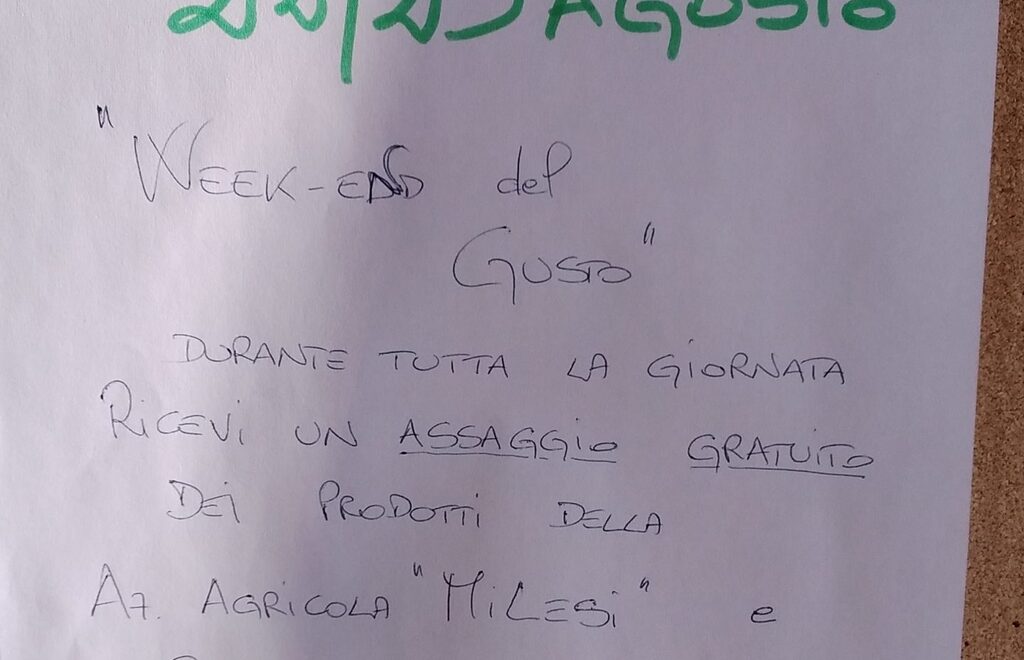 AGOSTO
"WEEK-END del
GUSTO"
DURANTE TUTTA LA GIORNATA
RICEVI UN ASSAGGIO GRATUITO
DEI PRODOTTI DELLA
AZ. AGRICOLA "MILESI" e